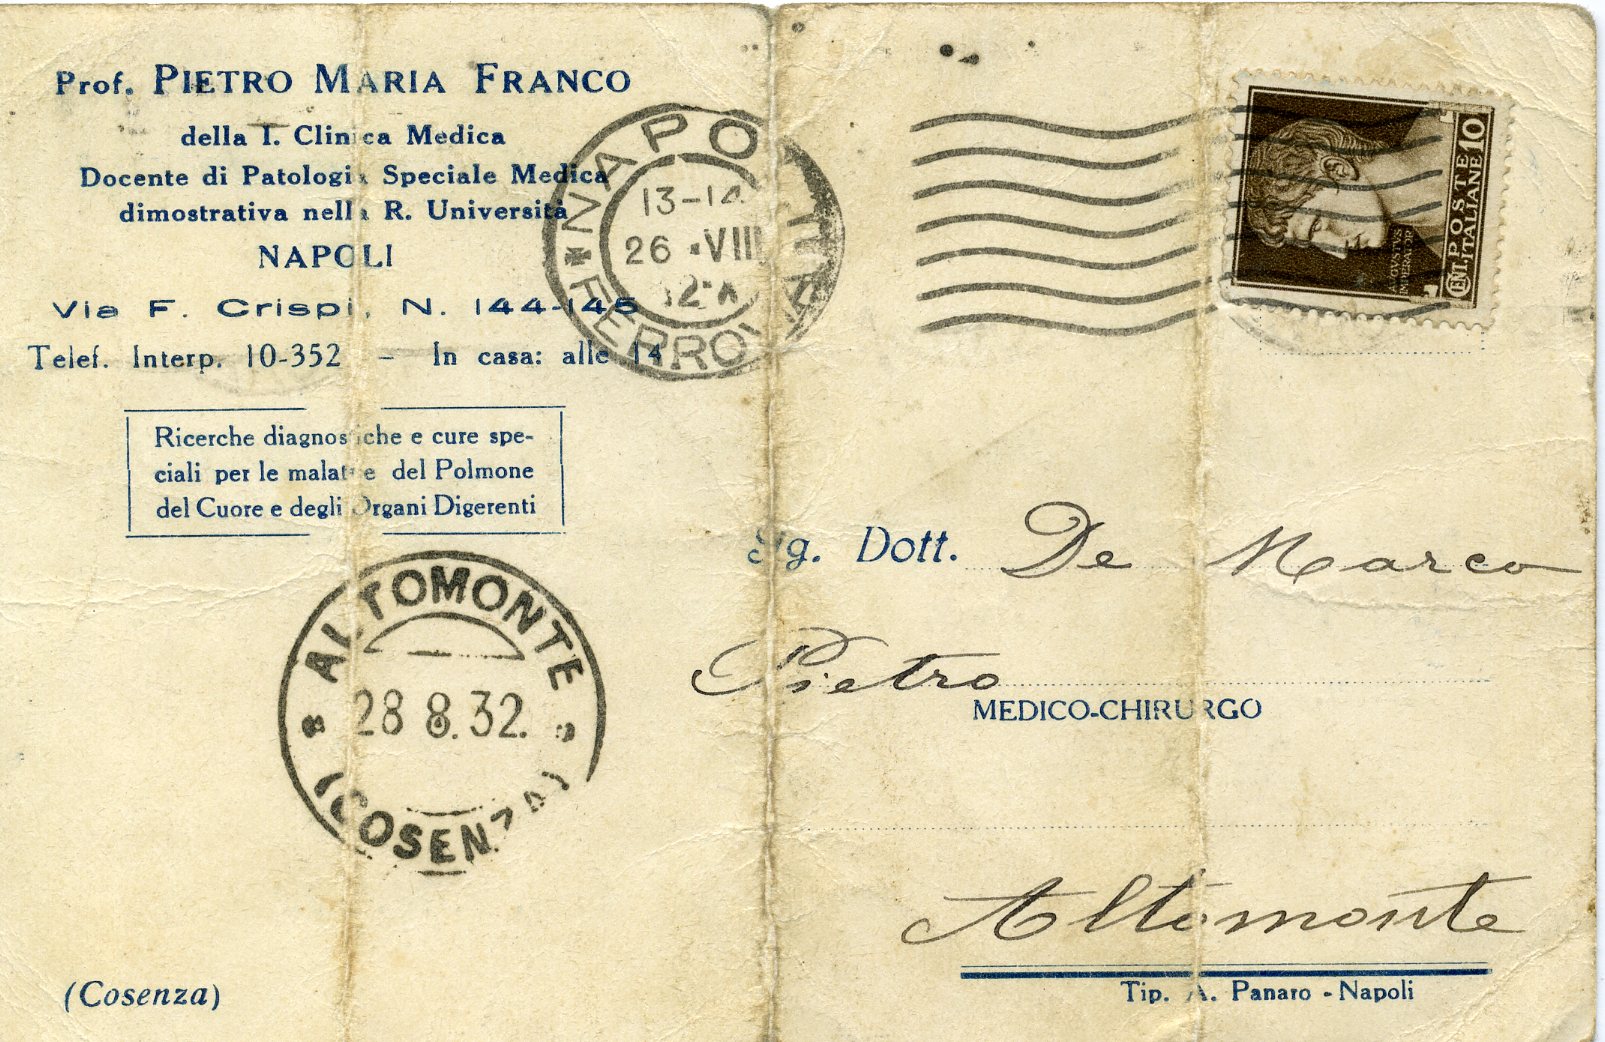 Prof. PIETRO MARIA FRANCO
della I. Clinica Medica
Docente di Patologia Speciale Medica
dimostrativa nella R. Università
NAPOLI
Via F. Crispi, N. 144-145
Telef. Interp. 10-352 - In casa: alle 14
Ricerche diagnostiche e cure spe-
ciali per le malattie del Polmone
del Cuore e degli Organi Digerenti
NAPOLI
FERROVIA
13-14
26 • VIII
ALTOMONTE
28 8. 32.
(COSENZA)
(Cosenza)
CENT. 10
POSTE
ITALIANE
Sg. Dott. De Marco
Pietro
MEDICO-CHIRURGO
Altomonte
Tip. A. Panaro - Napoli